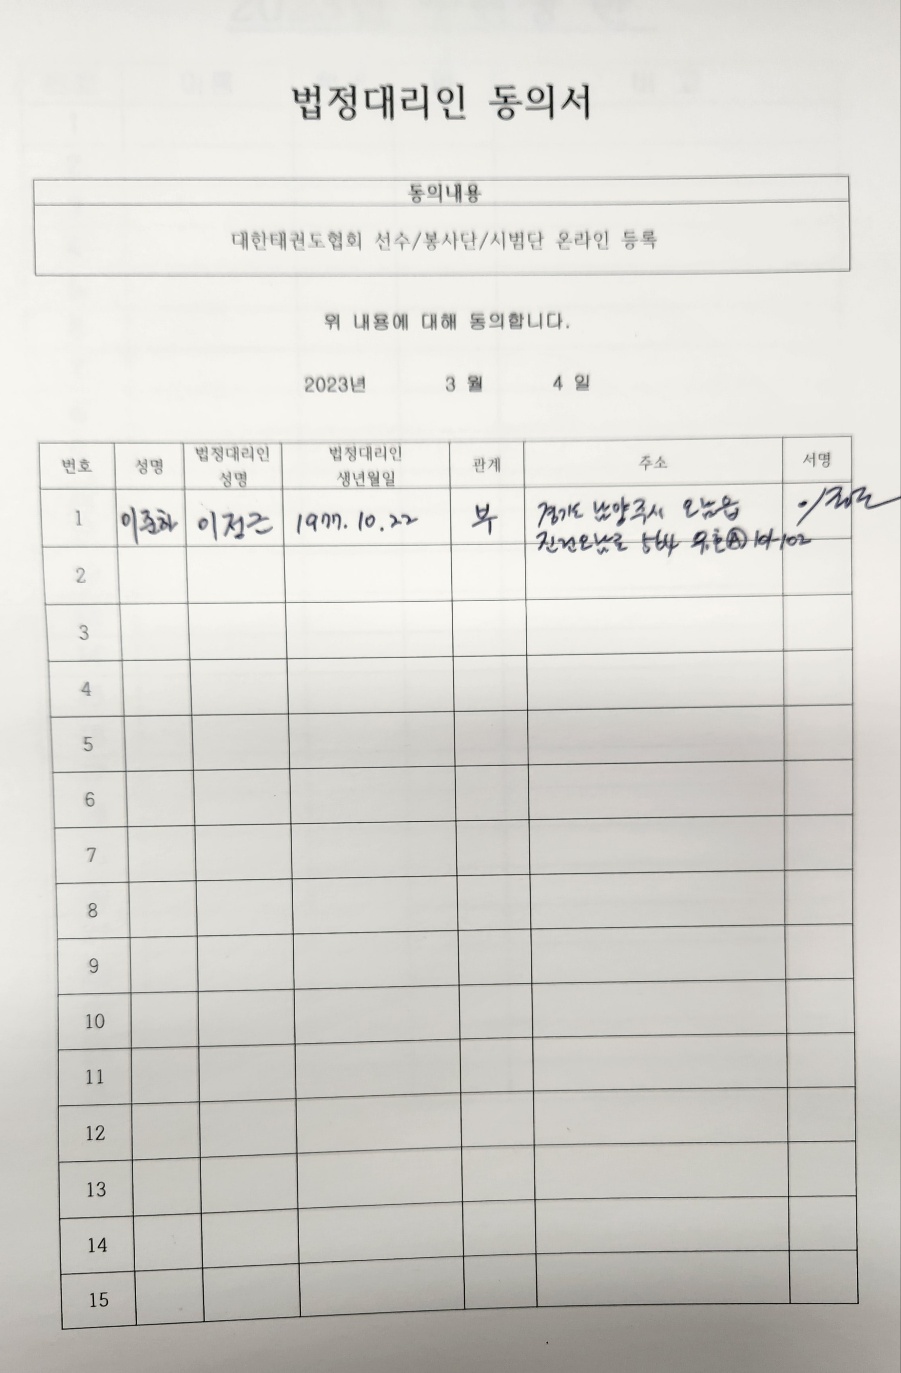 법정대리인 동의서
동의내용
대한태권도협회 선수/봉사단/시범단 온라인 등록
위 내용에 대해 동의합니다.
2023년 3 월 4 일
번호 성명 법정대리인 성명 법정대리인 생년월일 관계 주소 서명
1 이정근 1977.10.22 부 경기도 남양주시 오남읍
진건오남로 564 Ⓐ 101-102
2
3
4
5
6
7
8
9
10
11
12
13
14
15